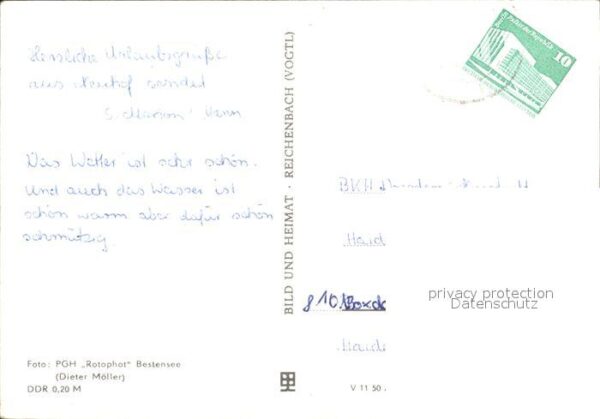 Herzliche Urlaubsgrüße
aus Neuhof sendet
Das Wetter ist sehr schön.
Und auch das Wasser ist
schön warm aber dafür schön
schmutzig.
Foto: PGH „Rotophot" Bestensee
(Dieter Möller)
DDR 0,20 M
BILD UND HEIMAT · REICHENBACH (VOGTL)
10
BKH
Haid
810
Haid
privacy protection
Datenschutz
V 11 50